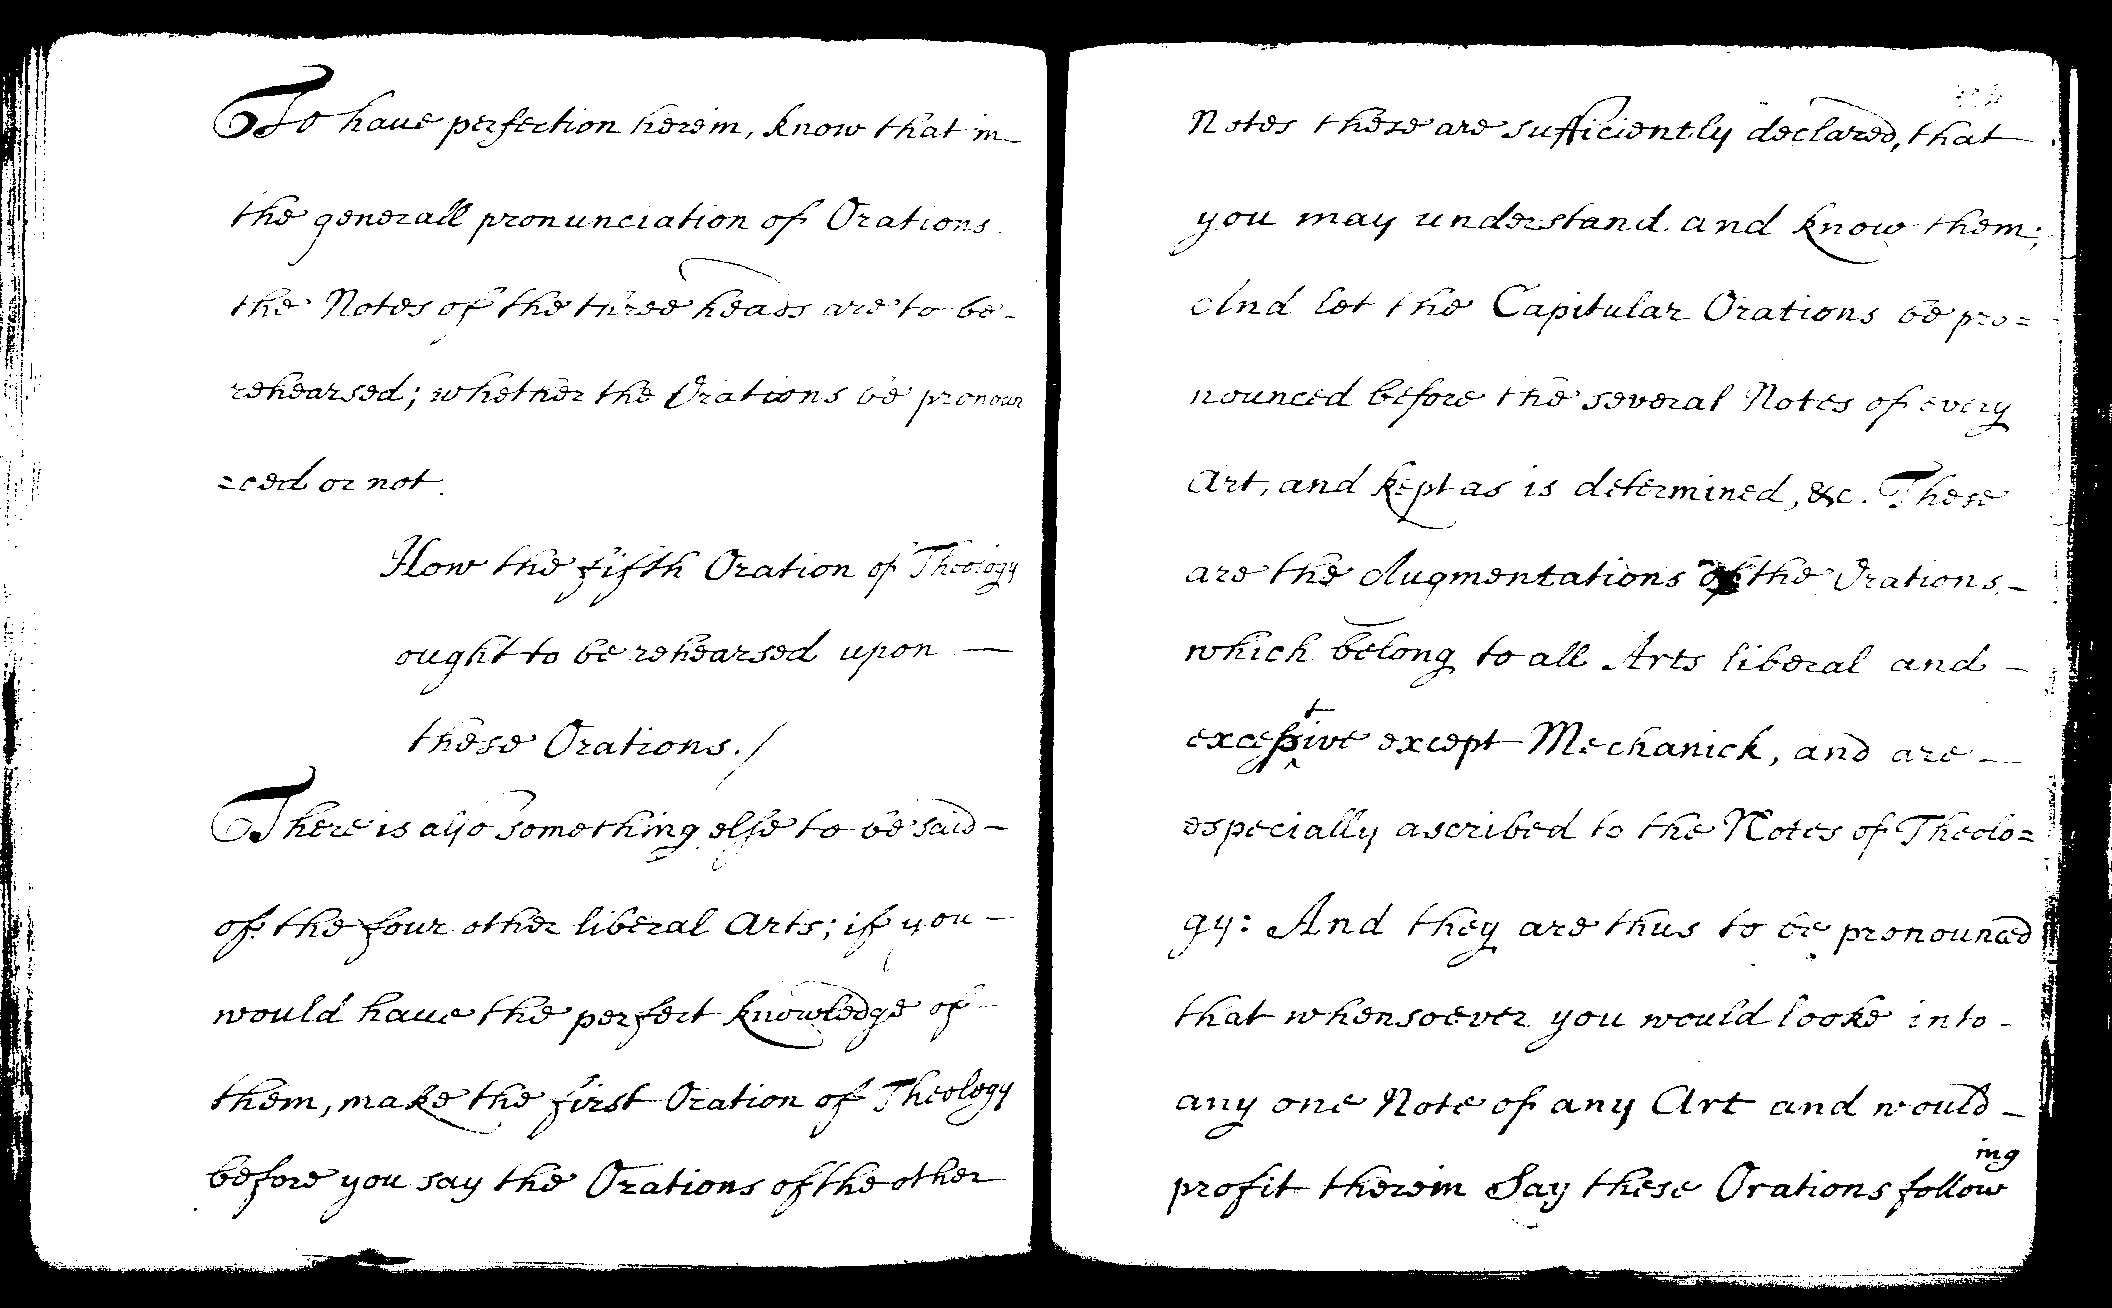 To have perfection herein, know that in
the generall pronunciation of Orations
the Notes of the three heads are to be
rehearsed; whether the Orations be pronoun
=ced or not.
How the fifth Oration of Theology
ought to be rehearsed upon —
these Orations./
There is also something else to be said
of the four other liberal Arts; if you
would have the perfect knowledge of
them, make the first Oration of Theology
before you say the Orations of the other
Notes these are sufficiently declared, that
you may understand and know them;
And let the Capitular Orations be pro=
nounced before the several Notes of every
Art, and kept as is determined, &c. These
are the Augmentations of the Orations,
which belong to all Arts liberal and
excessive except Mechanick, and are
especially ascribed to the Notes of Theolo=
gy: And they are thus to be pronounced
that whensoever you would looke into
any one Note of any Art and would
profit therein Say these Orations following